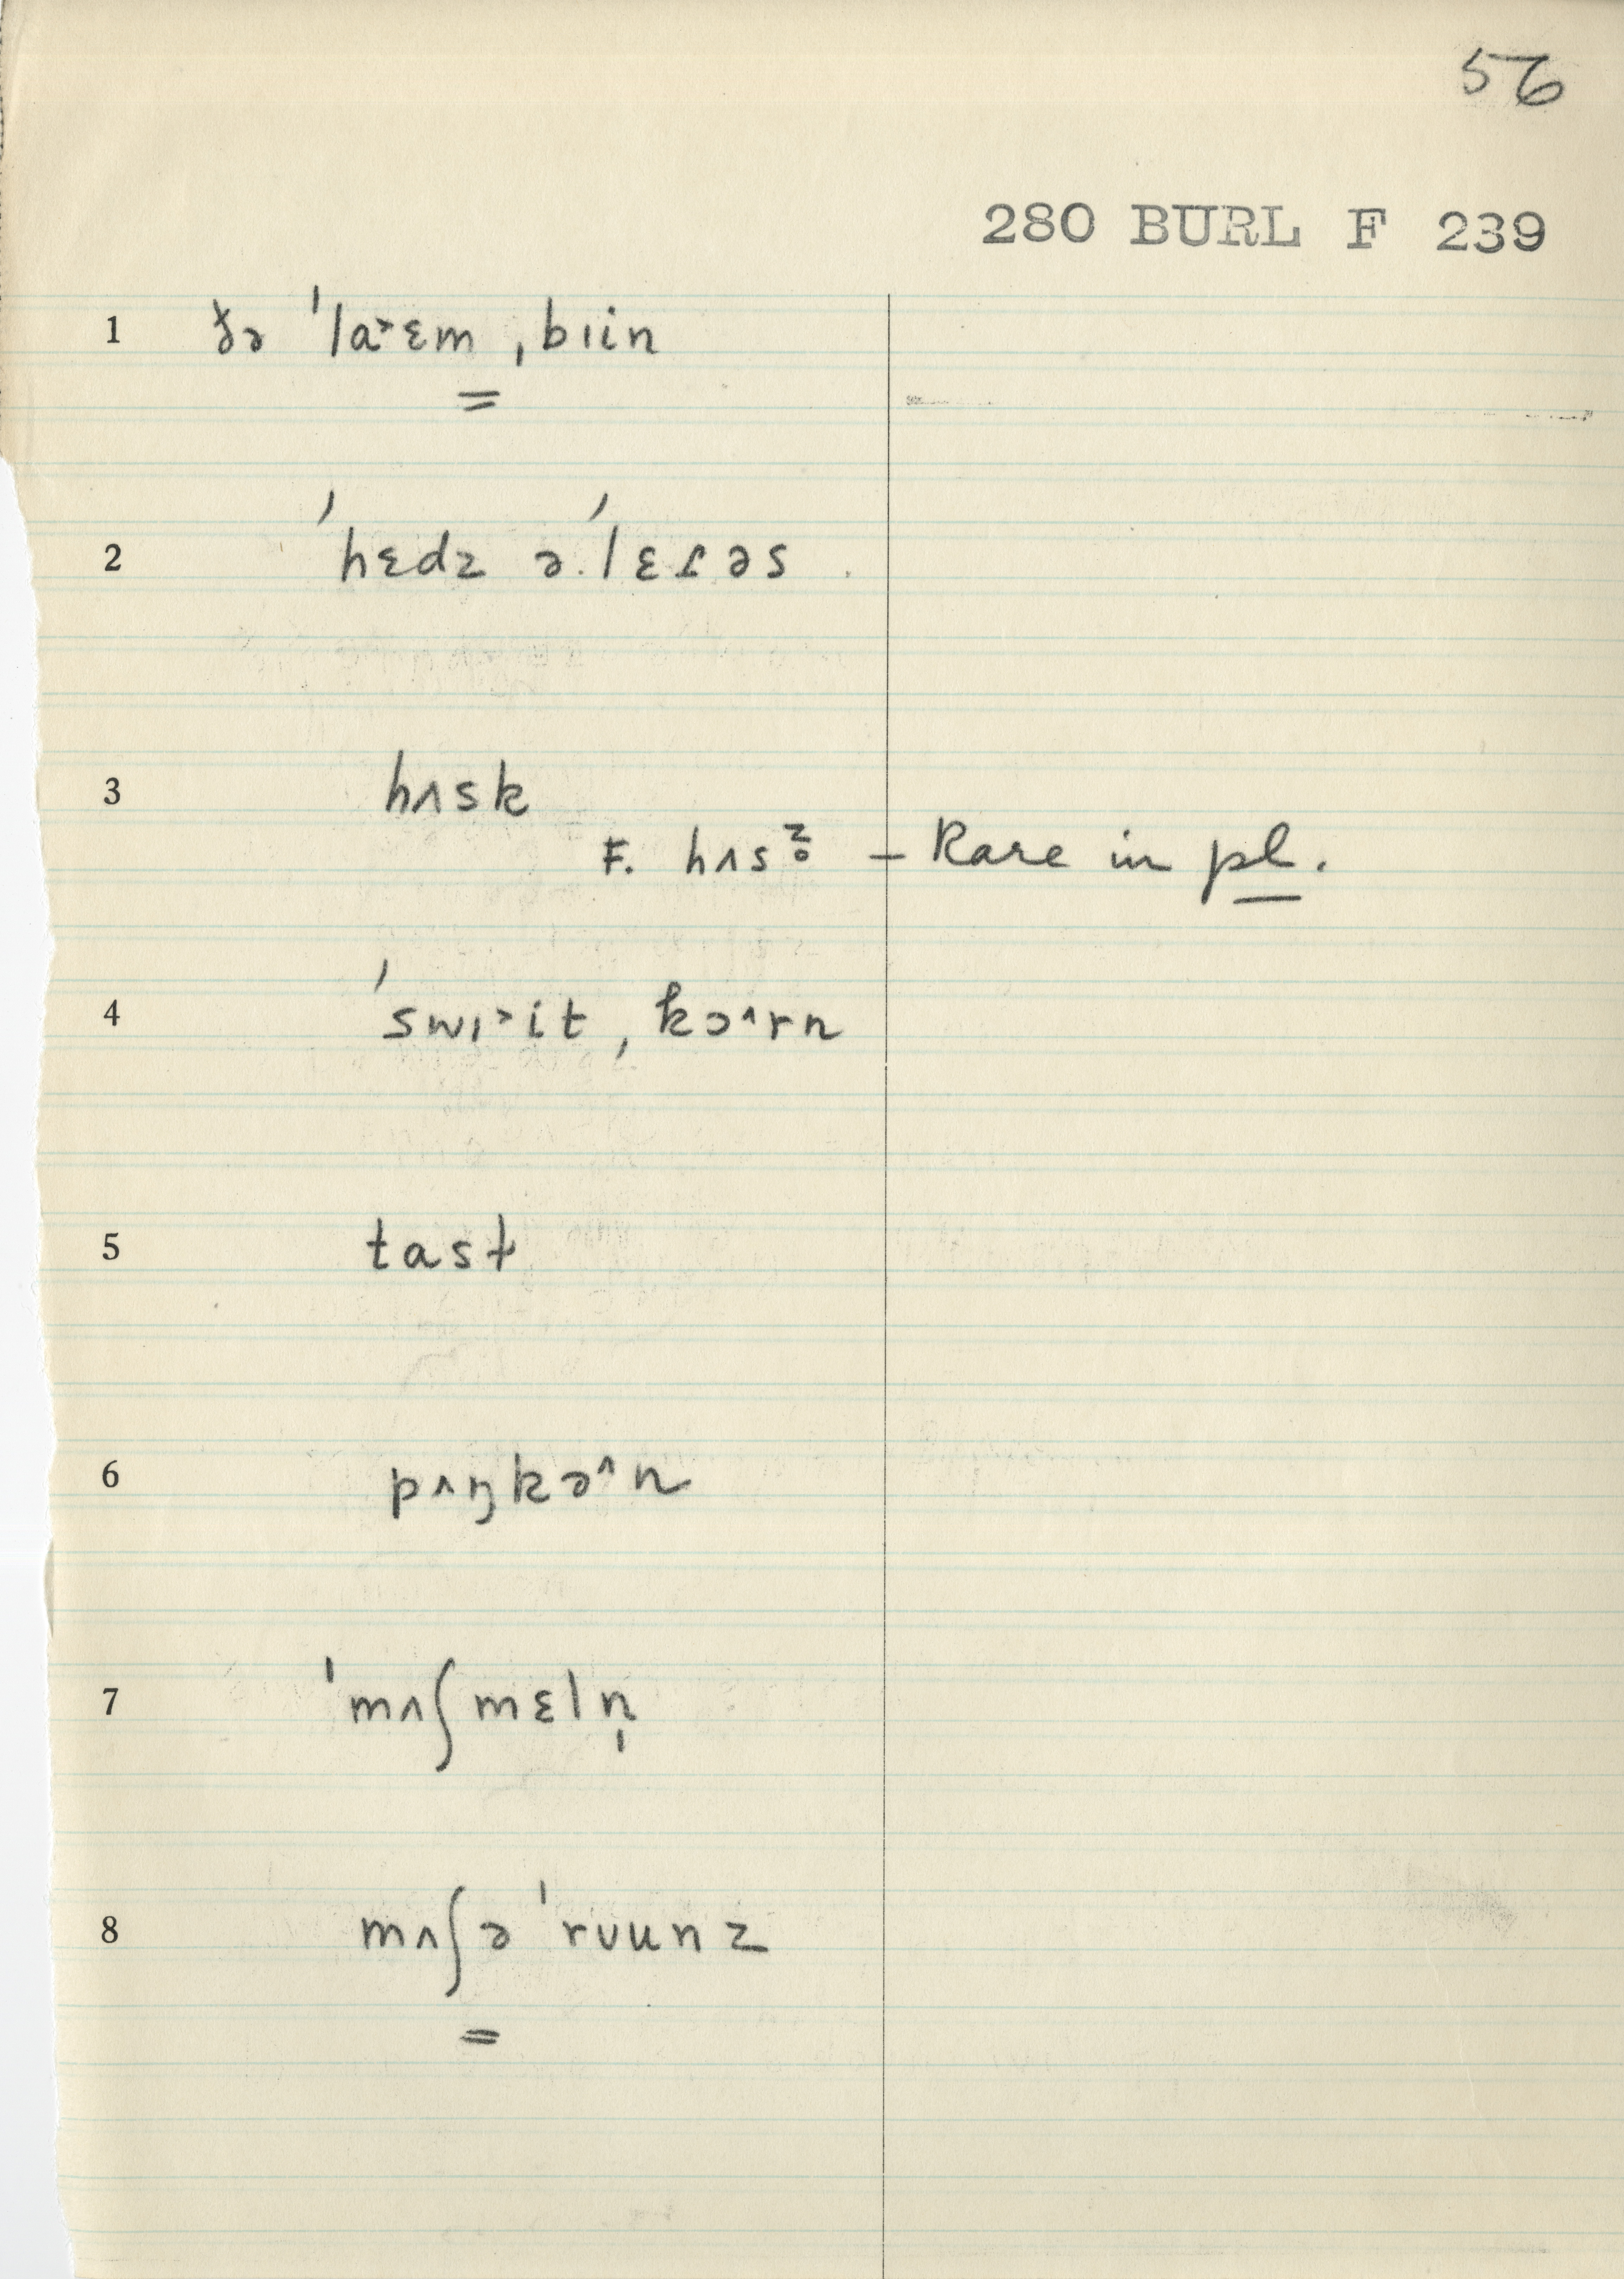 56
280 BURL F 239
1 ɤə ˈla˃ɛm ˌbɪin
=
2 ˈhɛdz əˈlɛɾəs
3 hʌsk
F. hʌsz̥ – Rare in pl.
4 ˈswɪ˃it ˌkɔ^rn
5 tast
6 pʌŋkə^n
7 ˈmʌʃmɛln̩
8 mʌʃəˈrʊunz
=